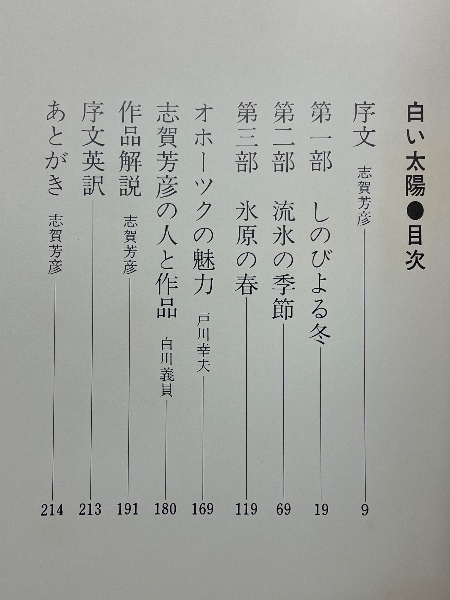 白い太陽●目次
序文 志賀芳彦 9
第一部 しのびよる冬 19
第二部 流氷の季節 69
第三部 氷原の春 119
オホーツクの魅力 戸川幸夫 169
志賀芳彦の人と作品 白川義員 180
作品解説 志賀芳彦 191
序文英訳 213
あとがき 志賀芳彦 214